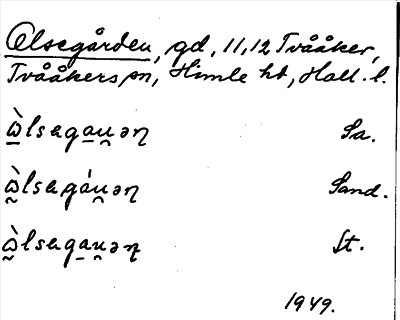 Olsegården, gd, 11,12 Tvååker,
Tvååkers sn, Himle hd, Hall. l.
ɷ̠̀lsega̠u̯əɳ Sa.
ɷ̰̀lsegáu̯əɳ Sand.
ɷ̰̀lsega̠u̯əɳ St.
1949.